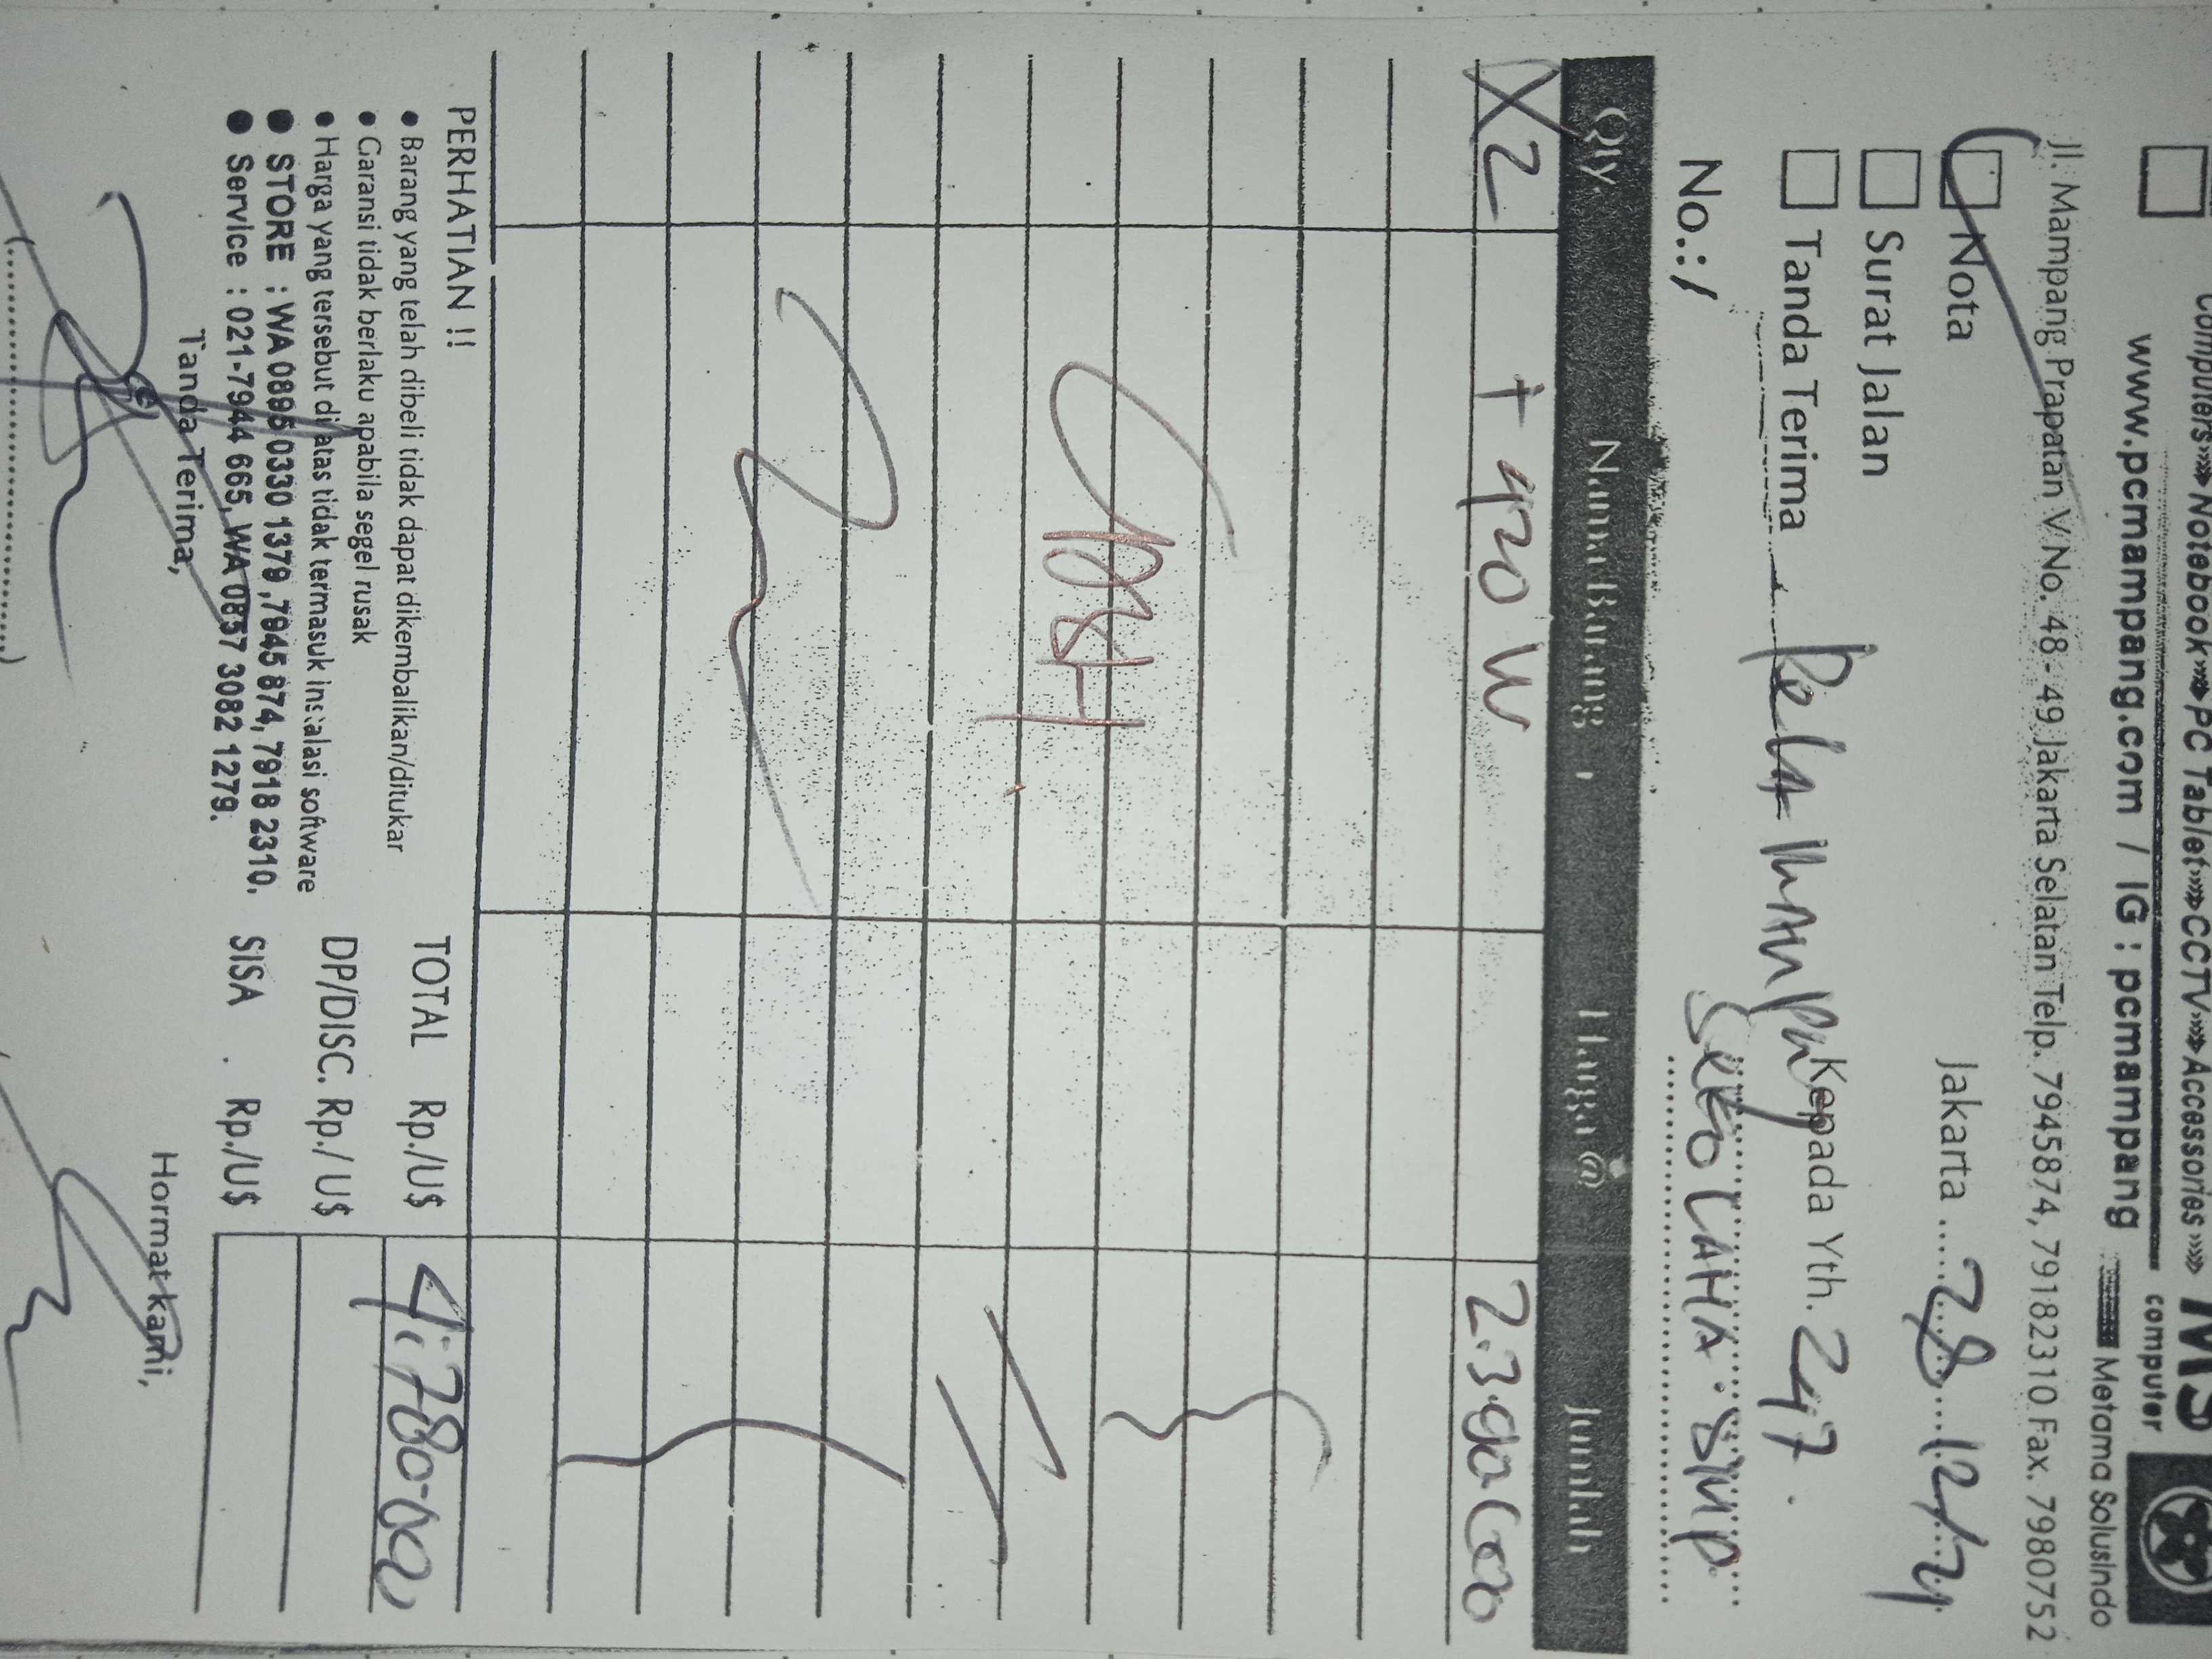 Computers»»Notebook»»PC Tablet»»CCTV»»Accessories»»»
MS
computer
www.pcmampang.com / IG : pcmampang
Metama Solusindo
Jl. Mampang Prapatan V No. 48 - 49 Jakarta Selatan Telp. 7945874, 79182310 Fax. 7980752
Nota
Jakarta 28 12/24
Surat Jalan
Tanda Terima
Kepada Yth. 247
No.:
SMP
Qty. Nama Barang Harga @ Jumlah
X2 T 420 W 2.390.000
PERHATIAN !!
• Barang yang telah dibeli tidak dapat dikembalikan/ditukar
• Garansi tidak berlaku apabila segel rusak
• Harga yang tersebut di atas tidak termasuk instalasi software
● STORE : WA 0895 0330 1379 ,7945 874, 7918 2310.
● Service : 021-7944 665, WA 0857 3082 1279.
TOTAL Rp./U$ 4.780.000
DP/DISC. Rp./ U$
SISA . Rp./U$
Tanda Terima,
Hormat kami,